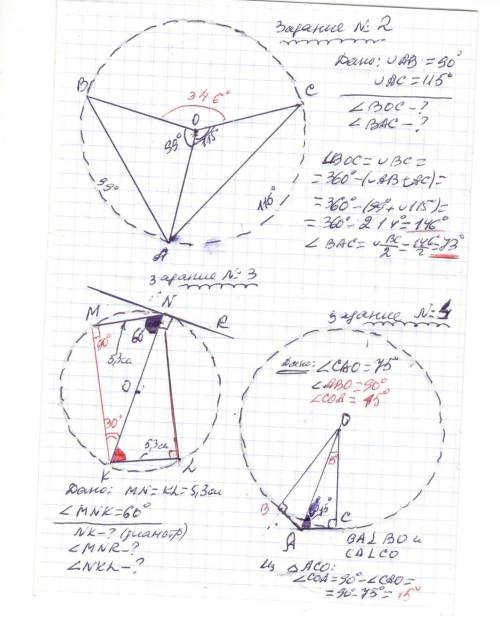 Задание № 2
Дано: ∪AB = 99°
∪AC = 115°
∠BOC - ?
∠BAC - ?
B
C
O
99°
115°
99°
A
∠BOC = ∪BC =
= 360° - (∪AB + AC) =
= 360° - (99° + ∪115°) =
= 360° - 214° = 146°
∠BAC = ∪BC/2 = 146°/2 = 73°
Задание № 3
M
N
R
90°
60°
5,3 см
O
30°
5,3 см
K
L
Дано: MN = KL = 5,3 см
∠MNK = 60°
NK - ? (диаметр)
∠MNR - ?
∠NKL - ?
Дано: ∠CAO = 75°
∠ABO = 90°
∠COA = 15°
O
B
A
C
BA⊥BO и
CA⊥CO
Из △ACO:
∠COA = 90° - ∠CAO =
= 90° - 75° = 15°